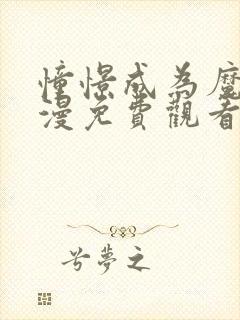 憧憬成為魔
漫免費觀看
兮夢之